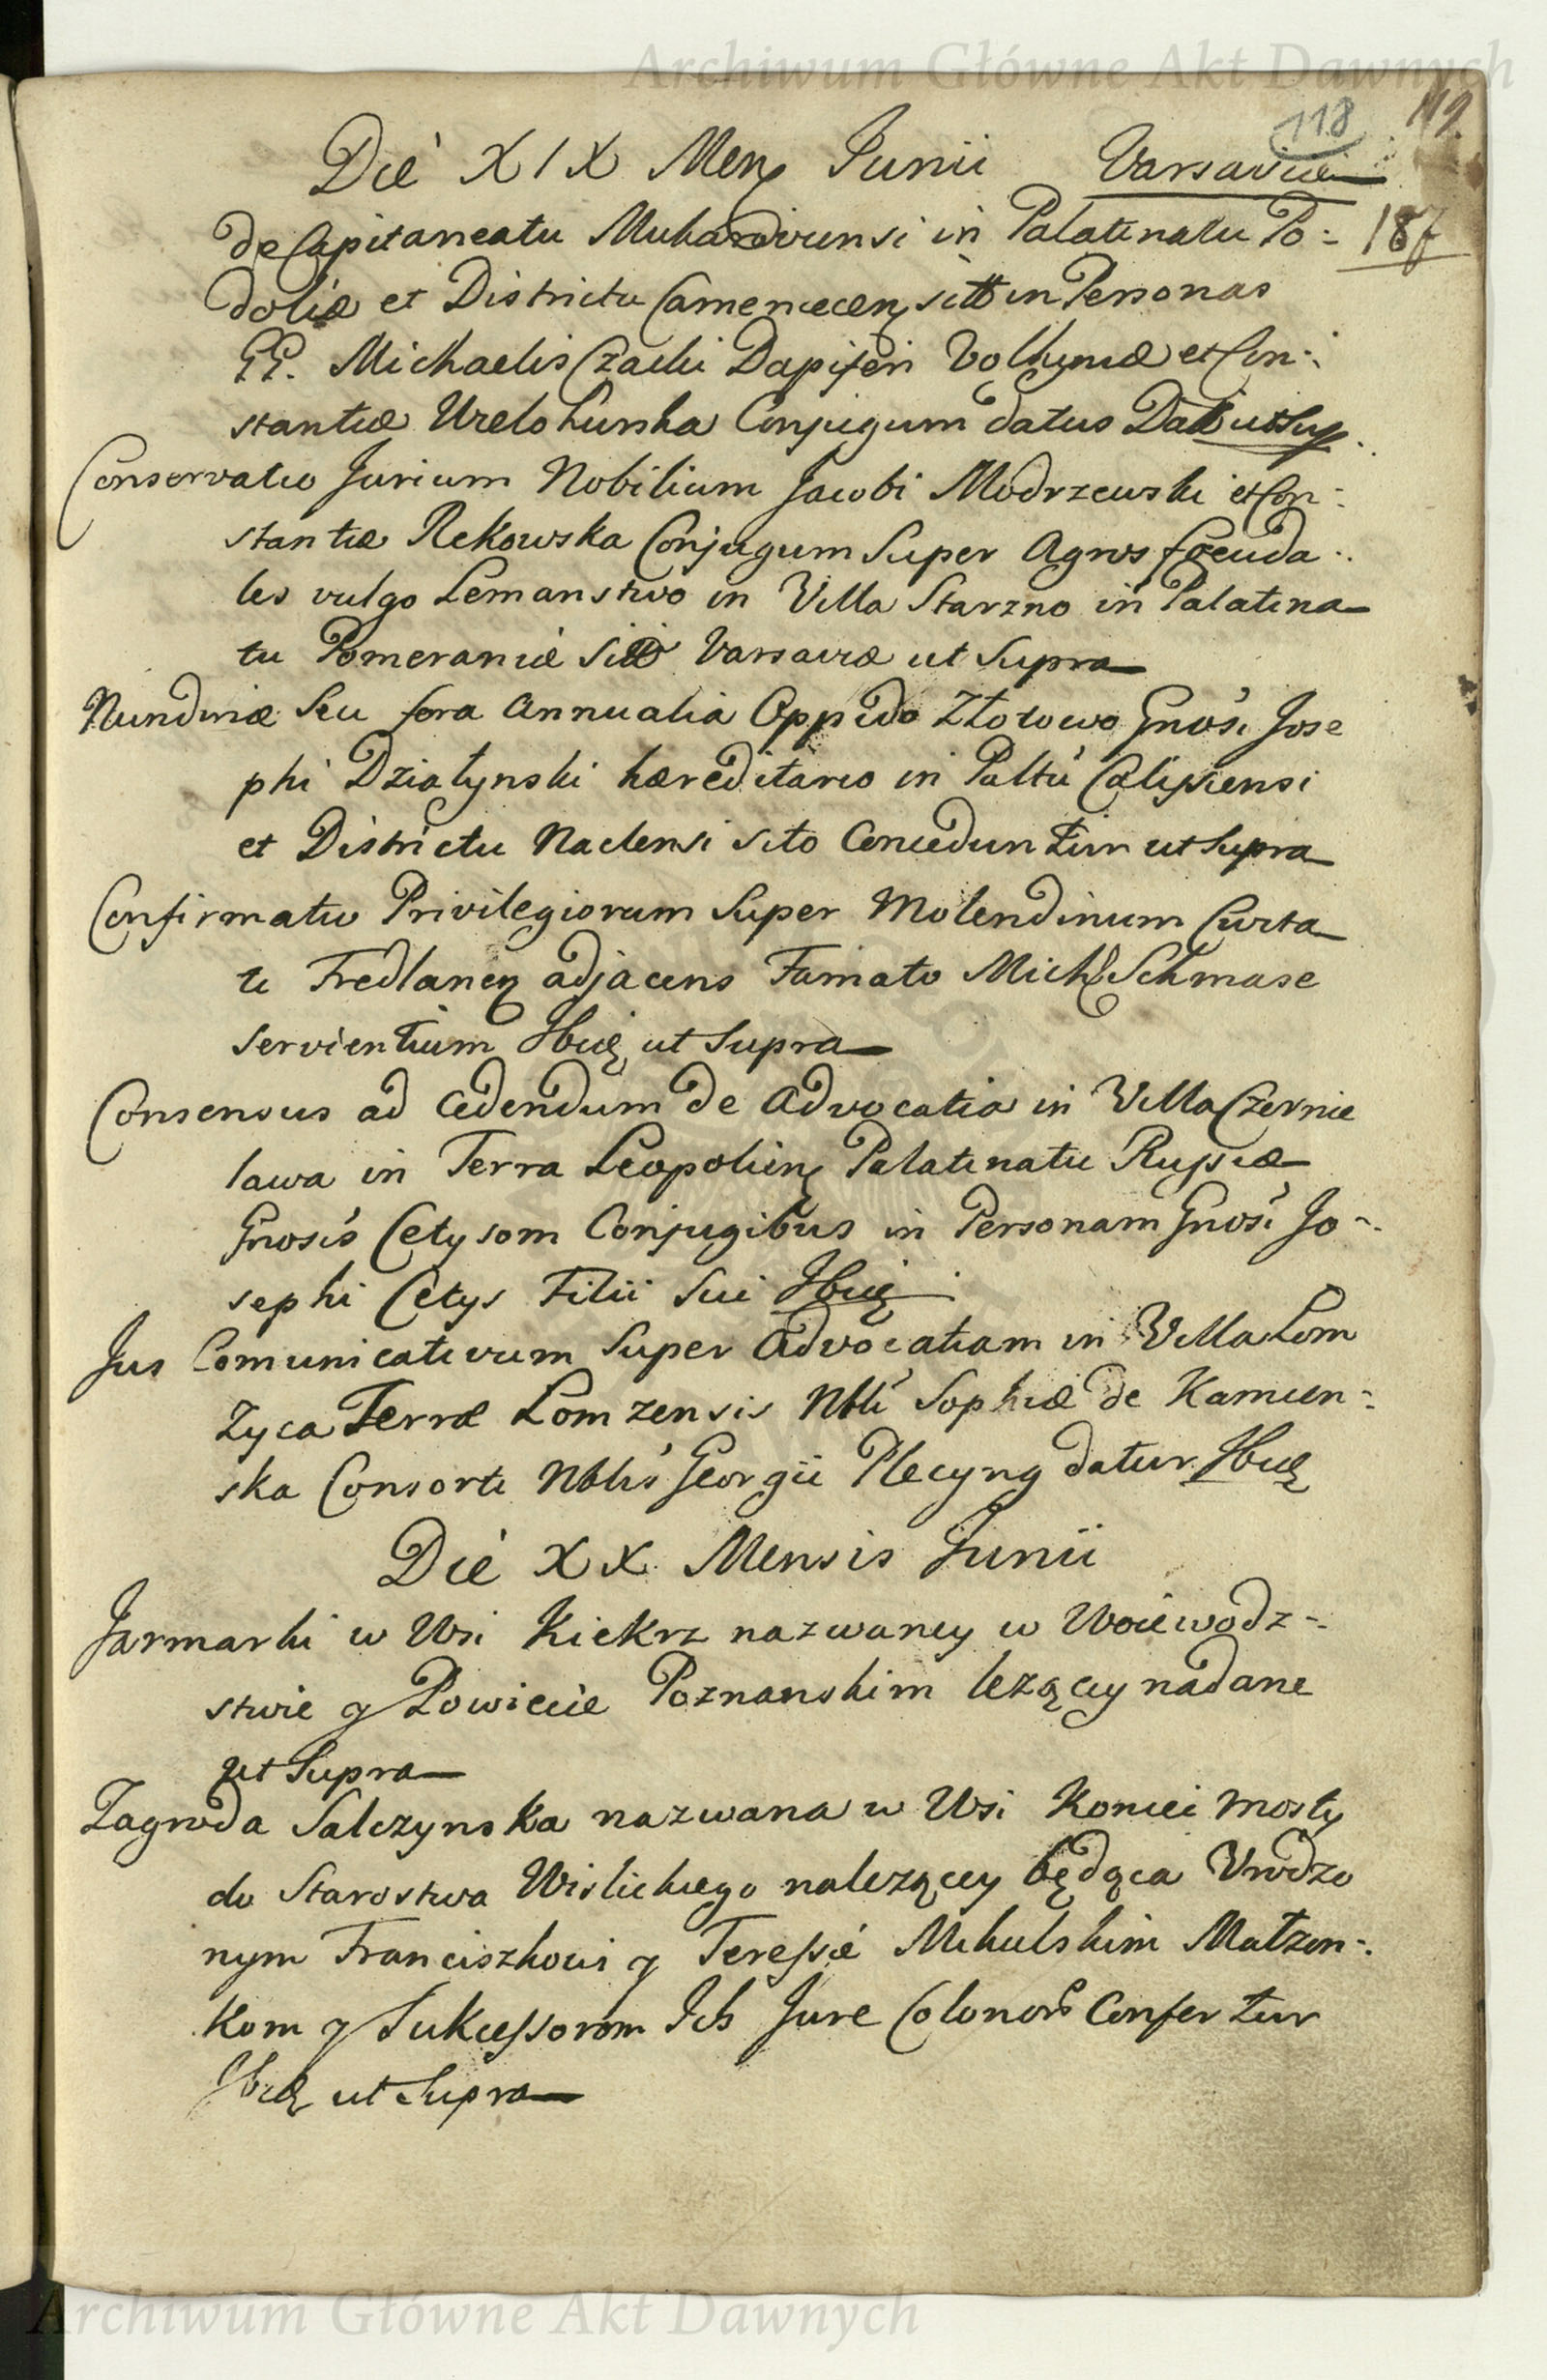 Archiwum Główne Akt Dawnych
118 119
Die XIX Mens Junii Varsaviæ
de Capitaneatu Muharoviensi in Palatinatu Po= 187
doliæ et Districtu Camenecens sitt in Personas
GG. Michaelis Czacki Dapiferi Volhyniæ et Con=
stantiæ Conjugum datus Datt ut Sup.
Conservatio Jurium Nobilium Jacobi Modrzewski et Con=
stantiæ Rekowska Conjugum Super Agros foeuda=
les vulgo Lemanstwo in Villa Starzno in Palatina
tu Pomeraniæ Varsaviæ ut Supra
Nundinæ Seu fora Annualia Oppido Złotowo Gnosi Jose
phi Działynski hæreditario in Palttu Calissiensi
et Districtu Naclensi sito Conceduntur ut Supra
Confirmatio Privilegiorum Super Molendinum Civita
ti Fredlanen adjacens Famato Mich Schmase
servientium Ibid ut Supra
Consensus ad cedendum de Advocatia in Villa Czernie
lawa in Terra Leopolien Palatinatu Russiæ
Gnosis Cetysom Conjugibus in Personam Gnosi Jo=
sephi Cetys Filii Sui Ibid
Jus Comunicativum Super Advocatiam in Villa Lom
zyca Terræ Lomzensis Nbli Sophiæ de Kamien=
ska Consorti Nblis Georgii Plecyng datur Ibid
Die XX Mensis Junii
Jarmarki w Wsi Kiekrz nazwaney w Woiewodz=
stwie y Powiecie Poznanskim lezącey nadane
ut Supra
Zagroda Salczynska nazwana w Wsi Koniei mosty
do Starostwa Wislickiego nalezącey będąca Urodzo
nym Franciszkowi y Teressie Mikulskim Małzon=
kom y Sukcessorom Ich Jure Colonor Confertur
Ibid ut Supra
Archiwum Główne Akt Dawnych